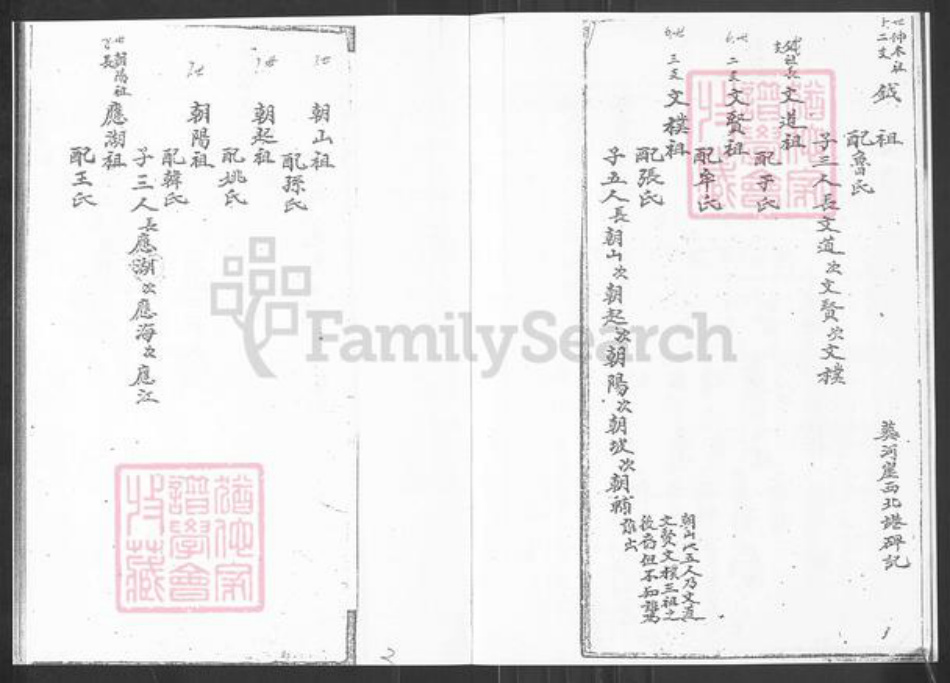 世仲木祖
二支
鉞祖
配魯氏
葬河崖西北塂碑記
子三人長文道次文賢次文樸
鉞祖長支
文道祖
配于氏
六世
二支
文賢祖
配牟氏
六世
三支
文樸祖
配張氏
子五人長朝山次朝起次朝陽次朝坡次朝補
朝山此五人乃文道
文賢文樸三祖之
後裔但不知誰為
誰出
1
7世
朝山祖
配孫氏
7世
朝起祖
配姚氏
7世
朝陽祖
配韓氏
子三人長應湖次應海次應江
世朝陽祖
長
應湖祖
配王氏
2
譜學會
收藏
譜學會
收藏
FamilySearch